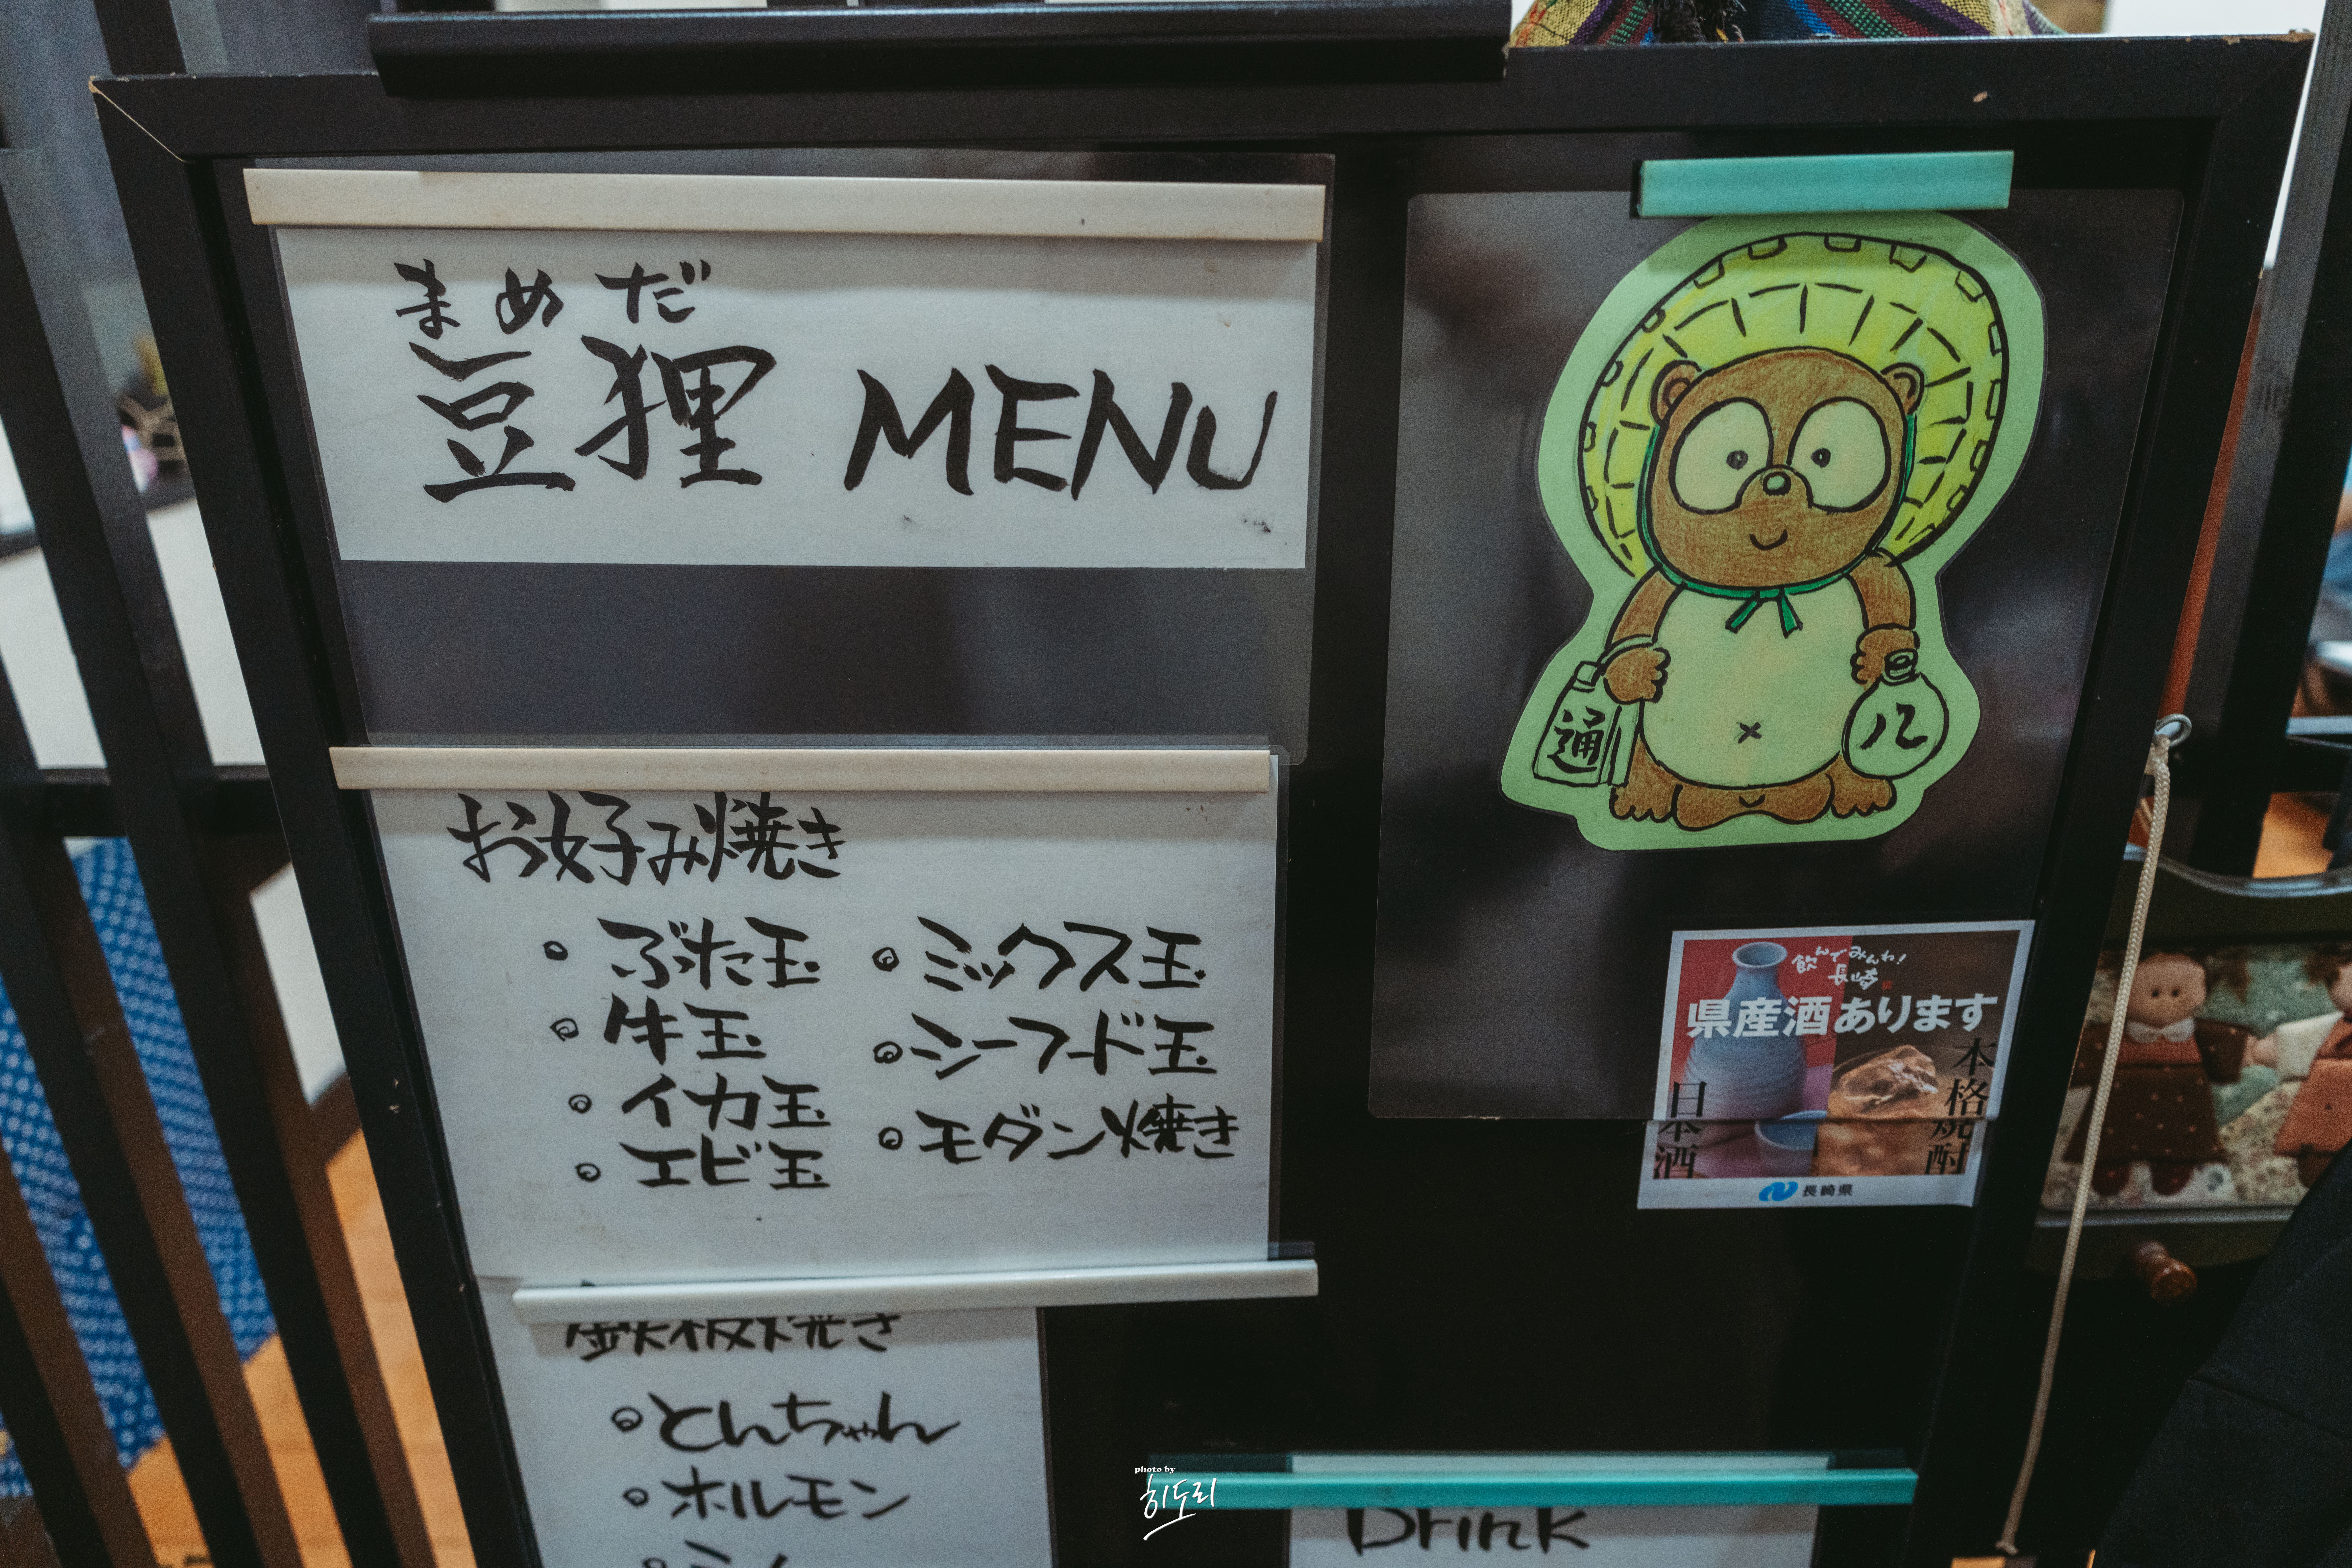 まめだ
豆狸 MENU
お好み焼き
ぶた玉
牛玉
イカ玉
エビ玉
ミックス玉
シーフード玉
モダン焼き
鉄板焼き
とんちゃん
ホルモン
通
八
飲んでみんね!
長崎
県産酒あります
日本酒
本格焼酎
長崎県
Drink
photo by
히도리